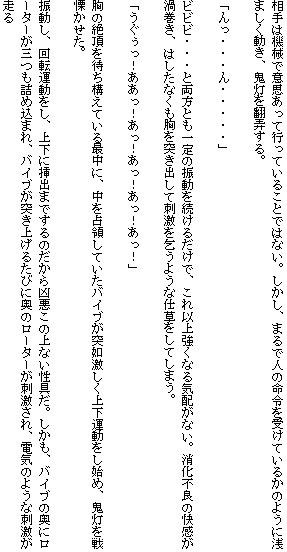 相手は機械で意思あって行っていることではない。しかし、まるで人の命令を受けているかのように浅
ましく動き、鬼灯を翻弄する。
「んっ・・・ん・・・・・」
ビビビ・・・と両方とも一定の振動を続けるだけで、これ以上強くなる気配がない。消化不良の快感が
渦巻き、はしたなくも胸を突き出して刺激を乞うような仕草をしてしまう。
「うぐぅっ！ああっ！あっ！あっ！あっ！あっ！」
胸の絶頂を待ち構えている最中に、中を占領していたバイブが突如激しく上下運動をし始め、鬼灯を戦
慄かせた。
振動し、回転運動をし、上下に挿出までするのだから凶悪この上ない性具だ。しかも、バイブの奥にロ
ーターが三つも詰め込まれ、バイブが突き上げるたびに奥のローターが刺激され、電気のような刺激が
走る